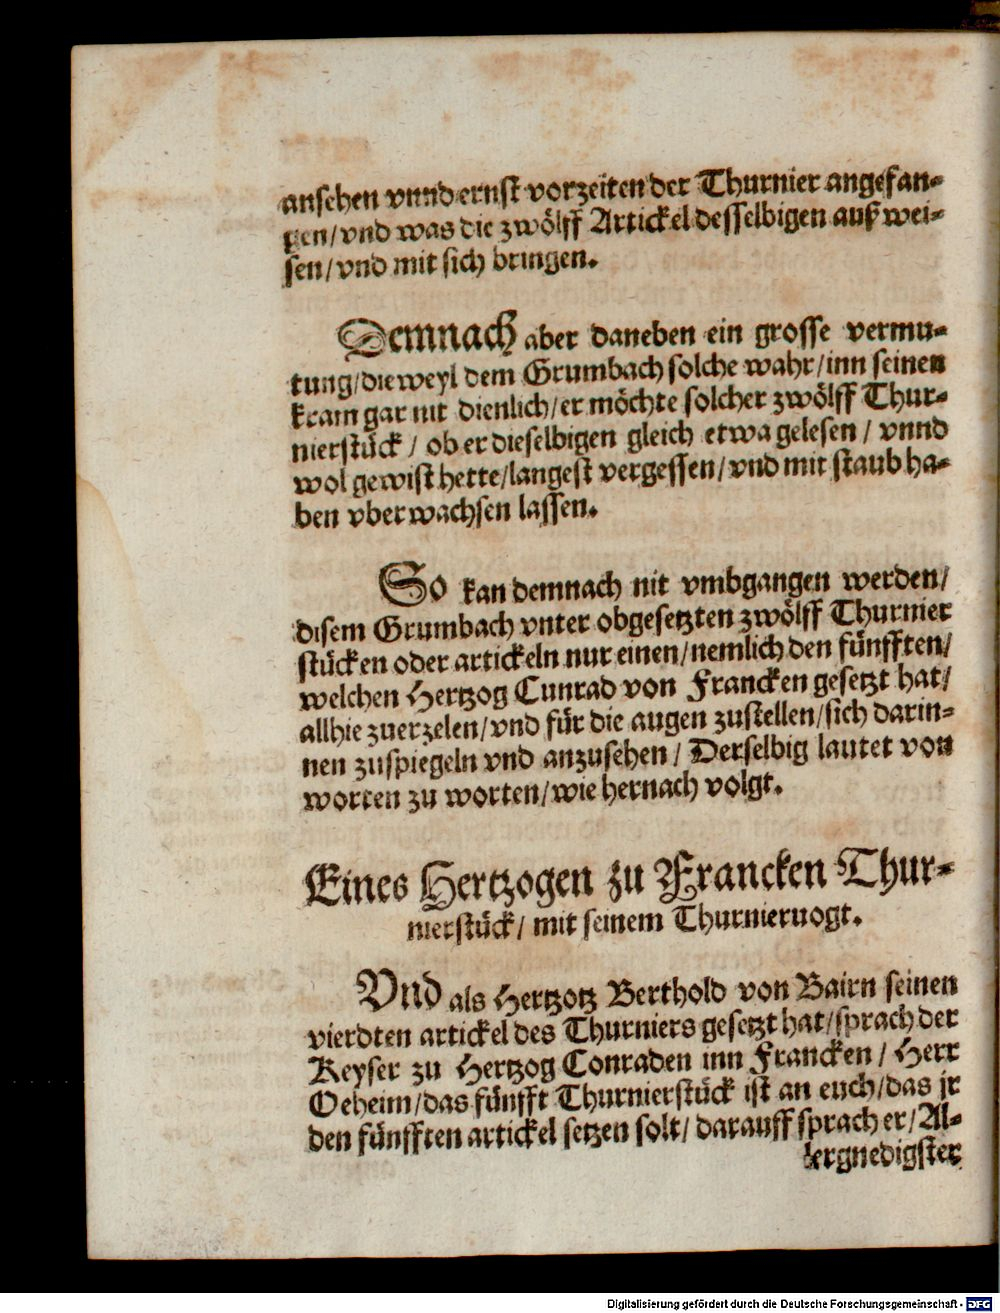 ansehen vnnd ernst vorzeiten der Thurnier angefan-
gen/ vnd was die zwölff Artickel desselbigen auß wei-
sen/ vnd mit sich bringen.
Demnach aber daneben ein grosse vermu-
tung/ dieweyl dem Grumbach solche wahr/ inn seinen
kram gar nit dienlich/ er möchte solcher zwölff Thur-
nierstück/ ob er dieselbigen gleich etwa gelesen/ vnnd
wol gewist hette/ langest vergessen/ vnd mit staub ha-
ben vberwachsen lassen.
So kan demnach nit vmbgangen werden/
disem Grumbach vnter obgesetzten zwölff Thurnier
stücken oder artickeln nur einen/ nemlich den fünfften/
welchen Hertzog Cunrad von Francken gesetzt hat/
allhie zuerzelen/ vnd für die augen zustellen/ sich darin-
nen zuspiegeln vnd anzusehen/ Derselbig lautet von
worten zu worten/ wie hernach volgt.
Eines Hertzogen zu Francken Thur-
nierstück/ mit seinem Thurnieruogt.
Vnd als Hertzotz Berthold von Bairn seinen
vierdten artickel des Thurniers gesetzt hat/ sprach der
Keyser zu Hertzog Conraden inn Francken/ Herr
Oeheim/ das fünfft Thurnierstück ist an euch/ das jr
den fünfften artickel setzen solt/ darauff sprach er/ Al-
lergnedigster
Digitalisierung gefördert durch die Deutsche Forschungsgemeinschaft - DFG